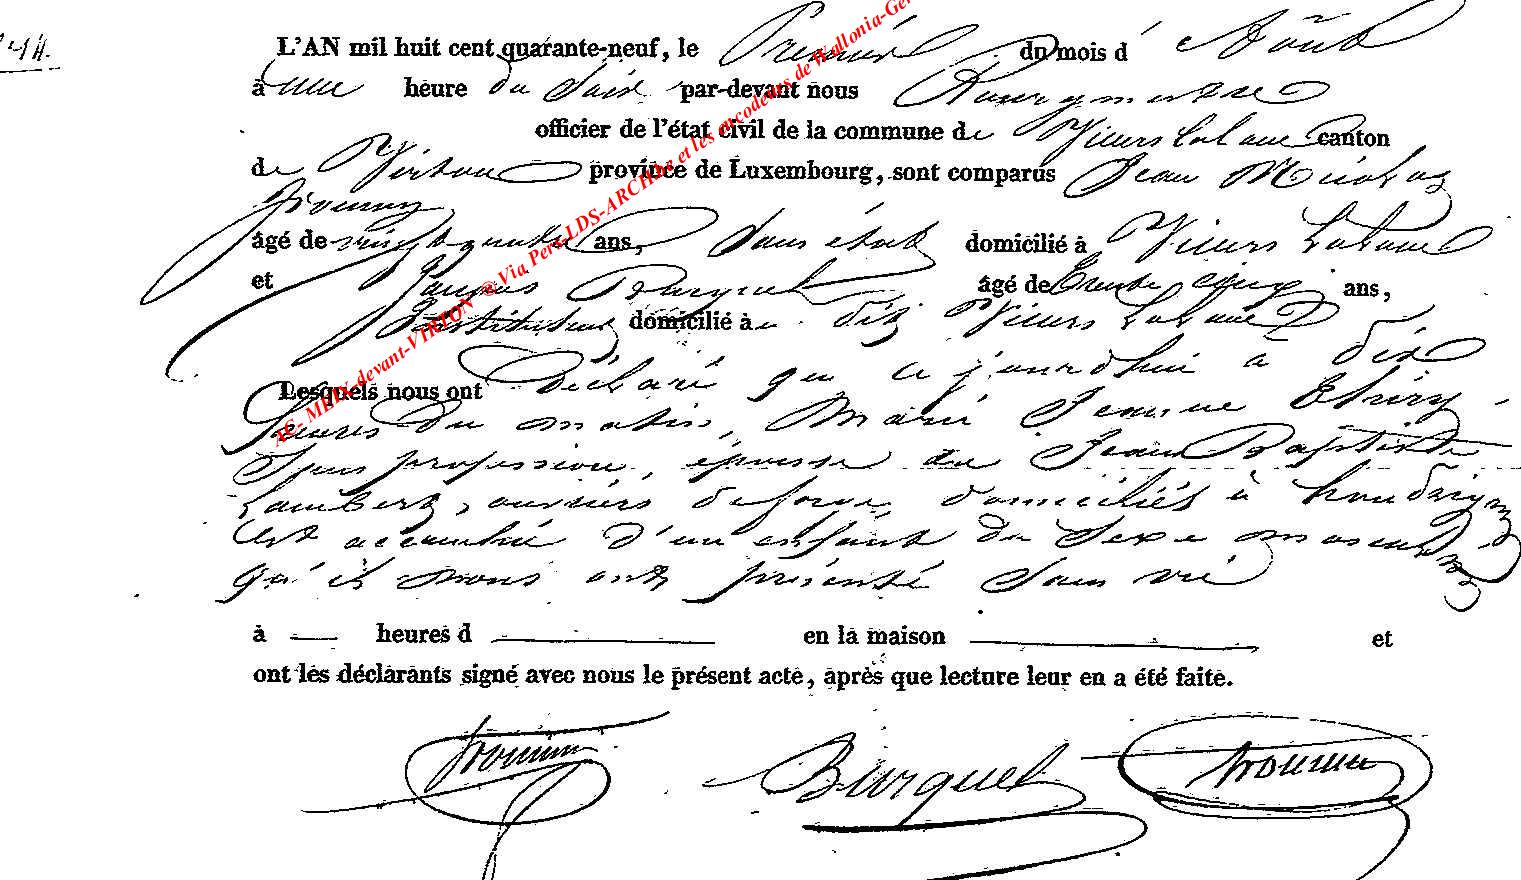 N° 14.
L'AN mil huit cent quarante-neuf, le Premier du mois d' Août
à une heure du Soir par-devant nous Bourgmestre
officier de l'état civil de la commune de Villers La Loue canton
de Virton province de Luxembourg, sont comparus Jean Nicolas
âgé de vingt quatre ans, Sans état domicilié à Villers La Loue
et Jacques Burquel âgé de trente cinq ans,
Instituteur domicilié à dit Villers La Loue
Lesquels nous ont déclaré que ce jourdhui à dix
heures du matin, Marie Jeanne
Sans profession, épouse de Jean Baptiste
Lambert, ouvriers de forge, domiciliés à houdrigny
Est accouché d'un enfant du Sexe masculin
qu'ils nous ont présenté Sans vie
à heures d en la maison et
ont les déclarants signé avec nous le présent acte, après que lecture leur en a été faite.
Burquel
AC- MEIX-devant-VIRTON ® Via Pers-LDS-ARCHives et les encodeurs de Wallonia-Gen